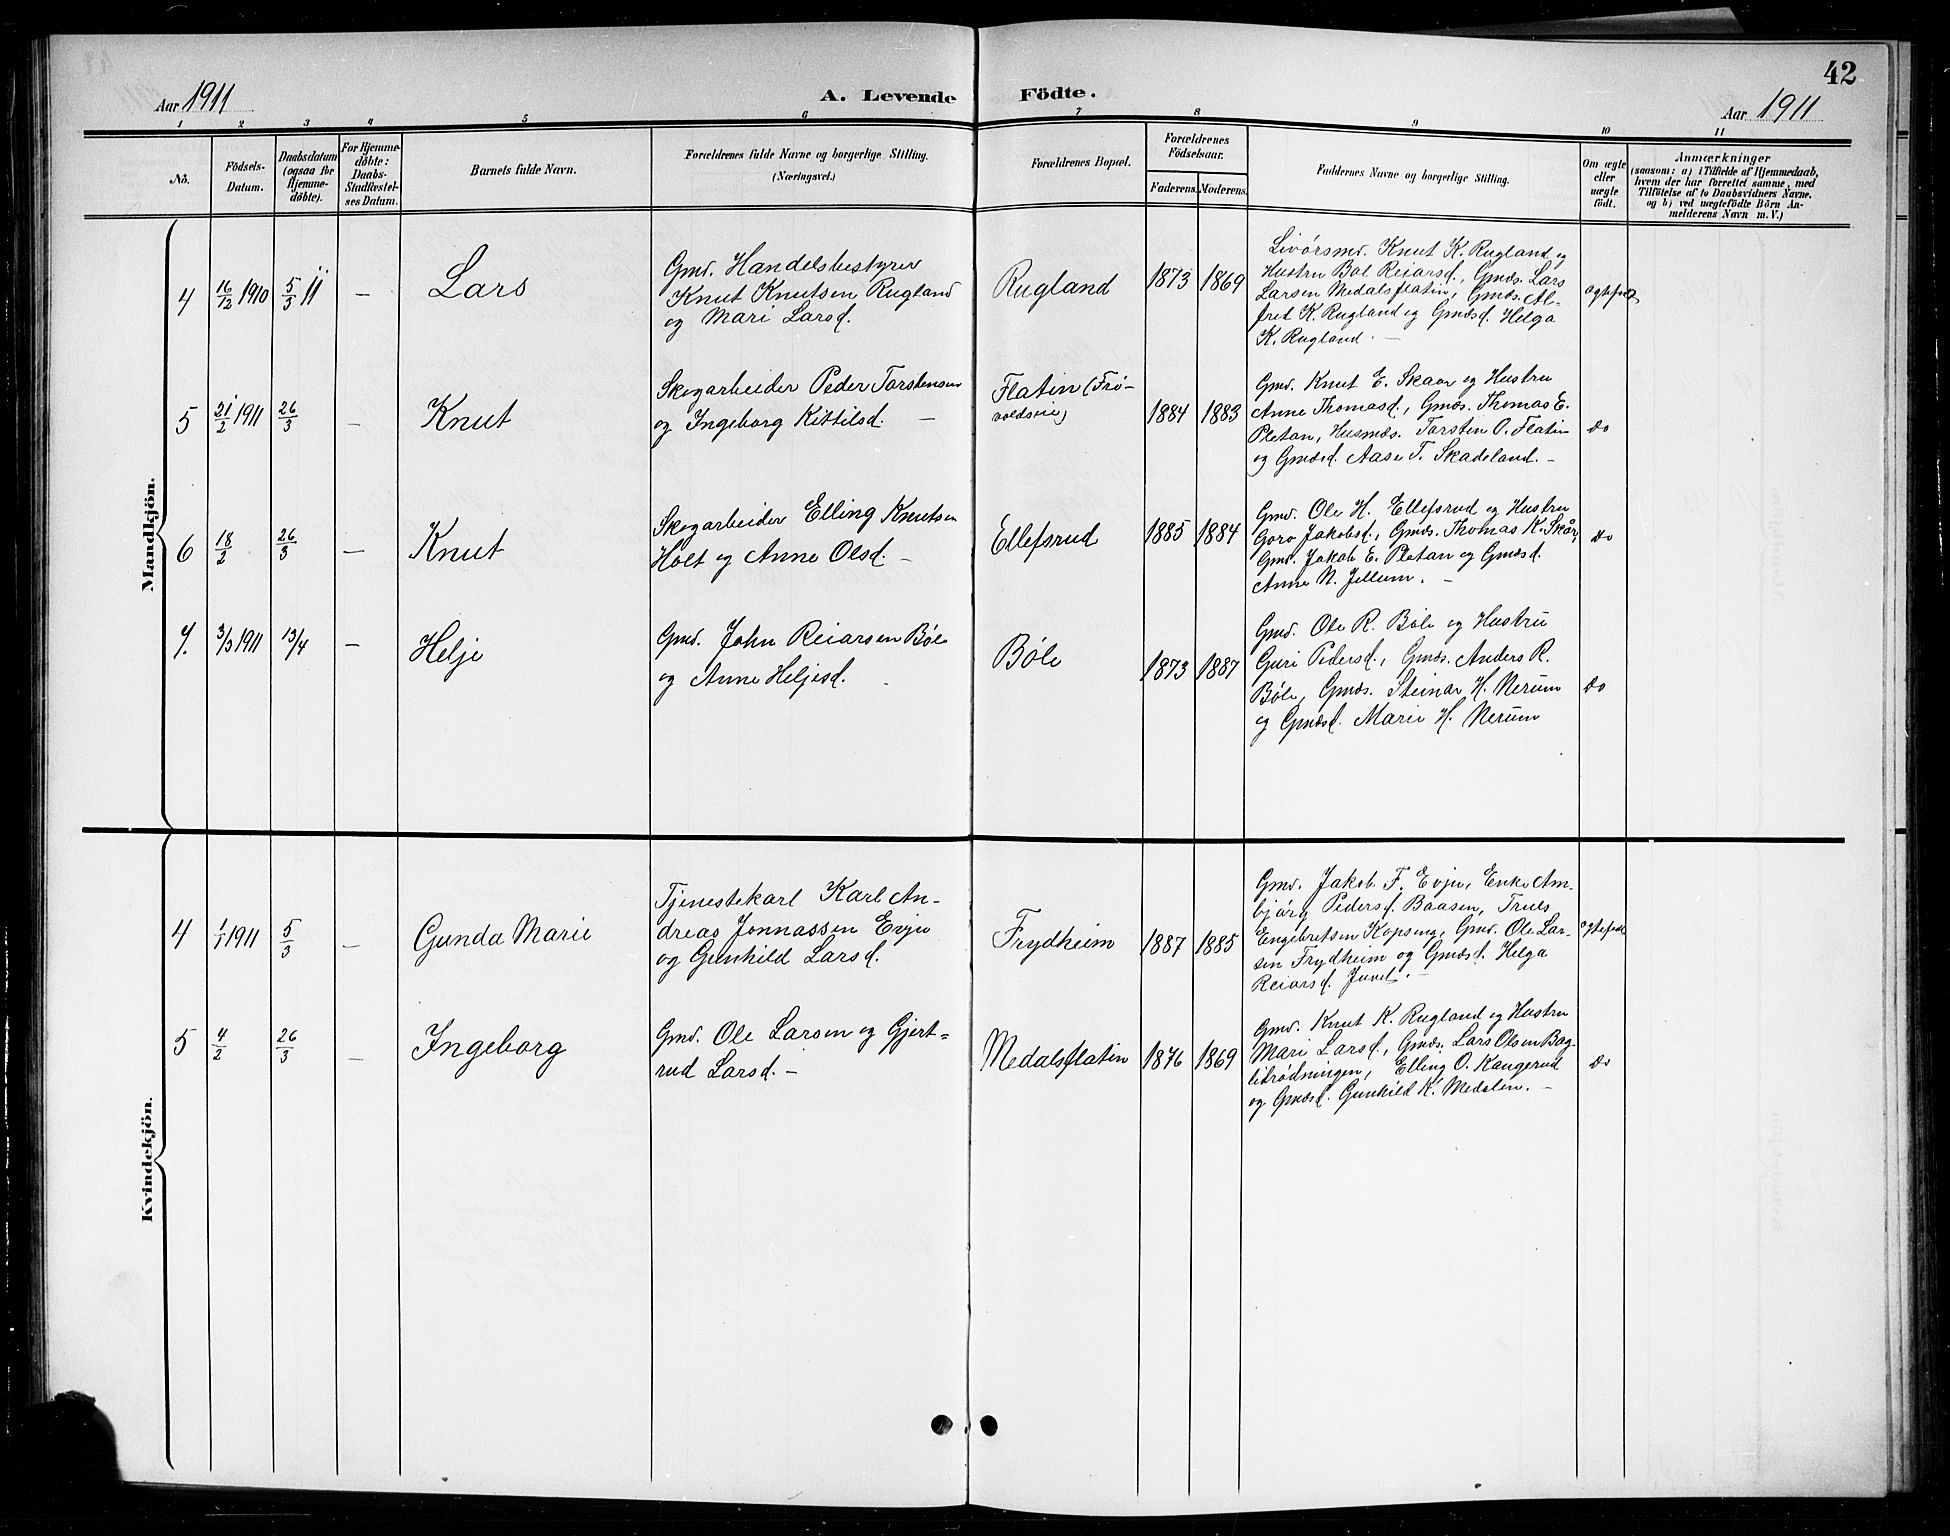 42
Aar 1911
A. Levende Födte.
Aar 1911
1 2 3 4 5 6 7 8 9 10 11
No.
Födsels-
Datum.
Daabsdatum
(ogsaa for
Hjemme-
døbte).
For Hjemme-
døbte:
Daabs-
Stadfæstel-
ses Datum.
Barnets fulde Navn.
Forældrenes fulde Navne og borgerlige Stilling.
(Næringsvei.)
Forældrenes Bopæl.
Forældrenes
Födselsaar.
Faderens. Moderens.
Faddernes Navne og borgerlige Stilling.
Om ægte
eller
uægte
födt.
Anmærkninger
(saasom: a) i Tilfælde af Hjemmedaab,
hvem der har forrettet samme, med
Tilföielse af to Daabsvidners Navne.
og b) ved uægtefödte Börn An-
melderens Navn m. V.)
Mandkjön.
4 16/12 1910 5/3 11 — Lars
Gmd. Handelsbestyrer
Knut Knutsen Rugland
og Mari Larsd.
Rugland 1873 1869
Livørsmd. Knut K. Rugland og
Hustru Bol Reiarsd., Gmds. Lars
Larsen Medalsflatin, Gmds. Al-
fred K. Rugland og Gmdsd. Helga
K. Rugland. —
ægtefød
5 21/2 1911 26/3 — Knut
Skogarbeider Peder Torstensen
og Ingeborg Kittilsd. —
Flatin (Frø-
voldseie)
1884 1883
Gmd. Knut E. Skaar og Hustru
Anne Thomasd., Gmds. Thomas E.
Pletan, Husmds. Torsten O. Flatin
og Gmdsd. Aase T. Skadeland. —
do
6 18/2 26/3 — Knut
Skogarbeider Elling Knutsen
Holt og Anne Olsd. —
Ellefsrud 1885 1884
Gmd. Ole H. Ellefsrud og Hustru
Goro Jakobsd., Gmds. Thomas K. Skår,
Gmd. Jakob E. Pletan og Gmdsd.
Anne N. Jellum. —
do
7. 3/3 1911 13/4 — Helje
Gmd. John Reiarsen Bøle
og Anne Heljesd.
Bøle 1873 1887
Gmd. Ole R. Bøle og Hustru
Guri Pedersd., Gmds. Anders R.
Bøle, Gmds. Steinar H. Nerum
og Gmdsd. Marie H. Nerum
do
Kvindekjön.
4 1/1 1911 5/3 — Gunda Marie
Tjenestekarl Karl An-
dreas Jonnassen Evju
og Gunhild Larsd.
Frydheim 1887 1885
Gmd. Jakob F. Evju, Enke Am-
bjørg Pedersd. Baasen, Truls
Engebretsen Kopseng, Gmd. Ole Lar-
sen Frydheim og Gmdsd. Helga
Reiarsd. Juvet. —
ægtefød
5 4/2 26/3 — Ingeborg
Gmd. Ole Larsen og Gjert-
rud Larsd. —
Medalsflatin 1876 1869
Gmd. Knut K. Rugland og Hustru
Mari Larsd., Gmds. Lars Olsen Bag-
lirødningen, Elling O. Kangerud
og Gmdsd. Gunhild K. Medalen. —
do